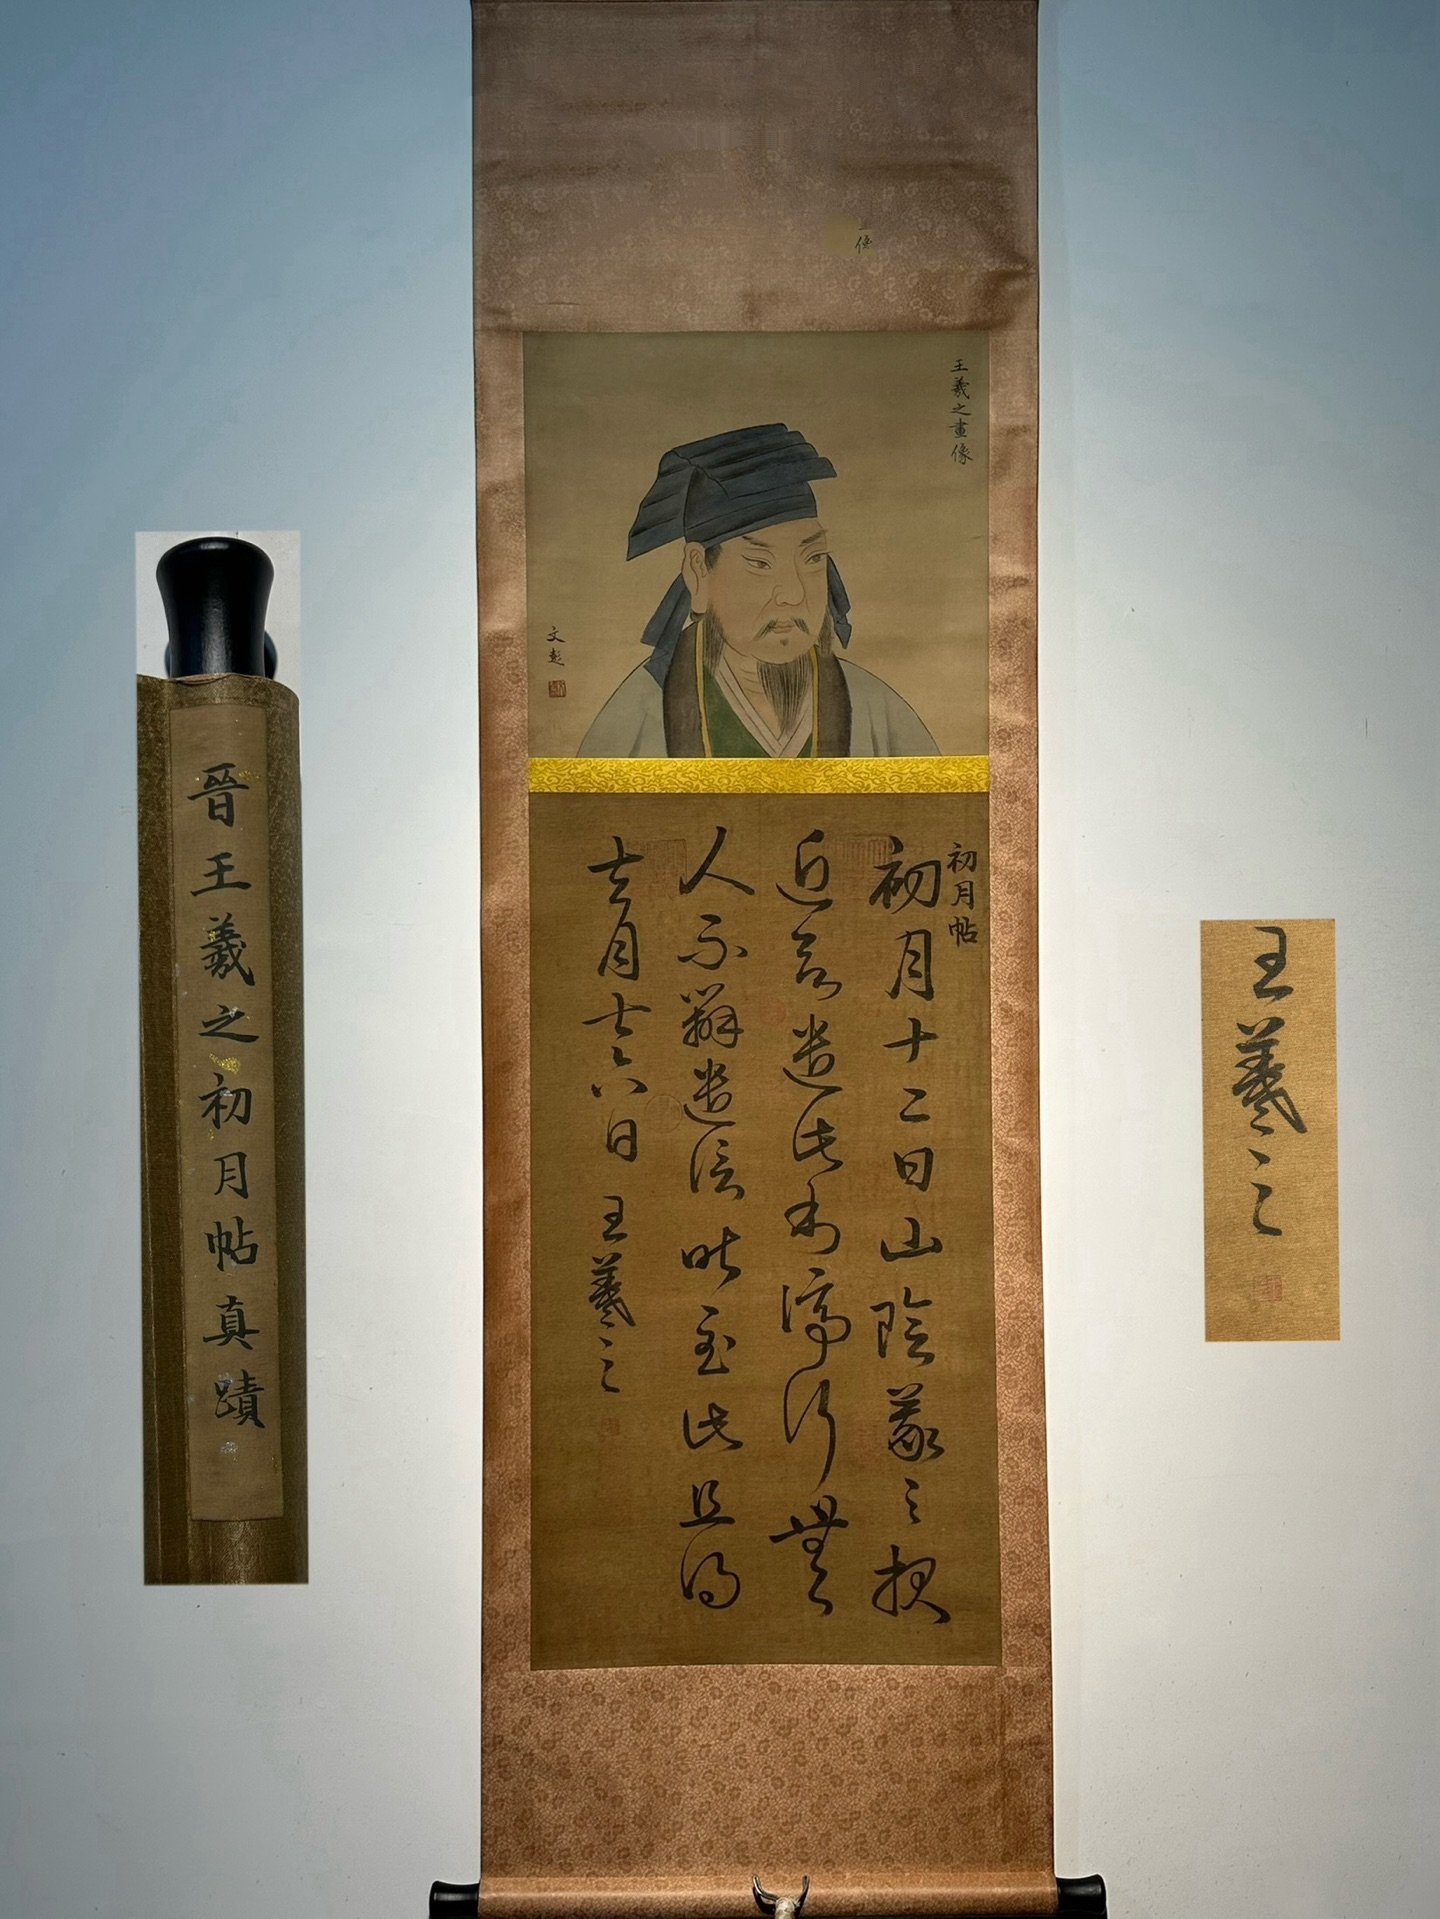 像
王羲之畫像
文彭
初月帖
初月十二日山陰羲之報
近欲遣此書停行無
人不辦遣信昨至此且得
去月十六日 王羲之
晉王羲之初月帖真蹟
王羲之